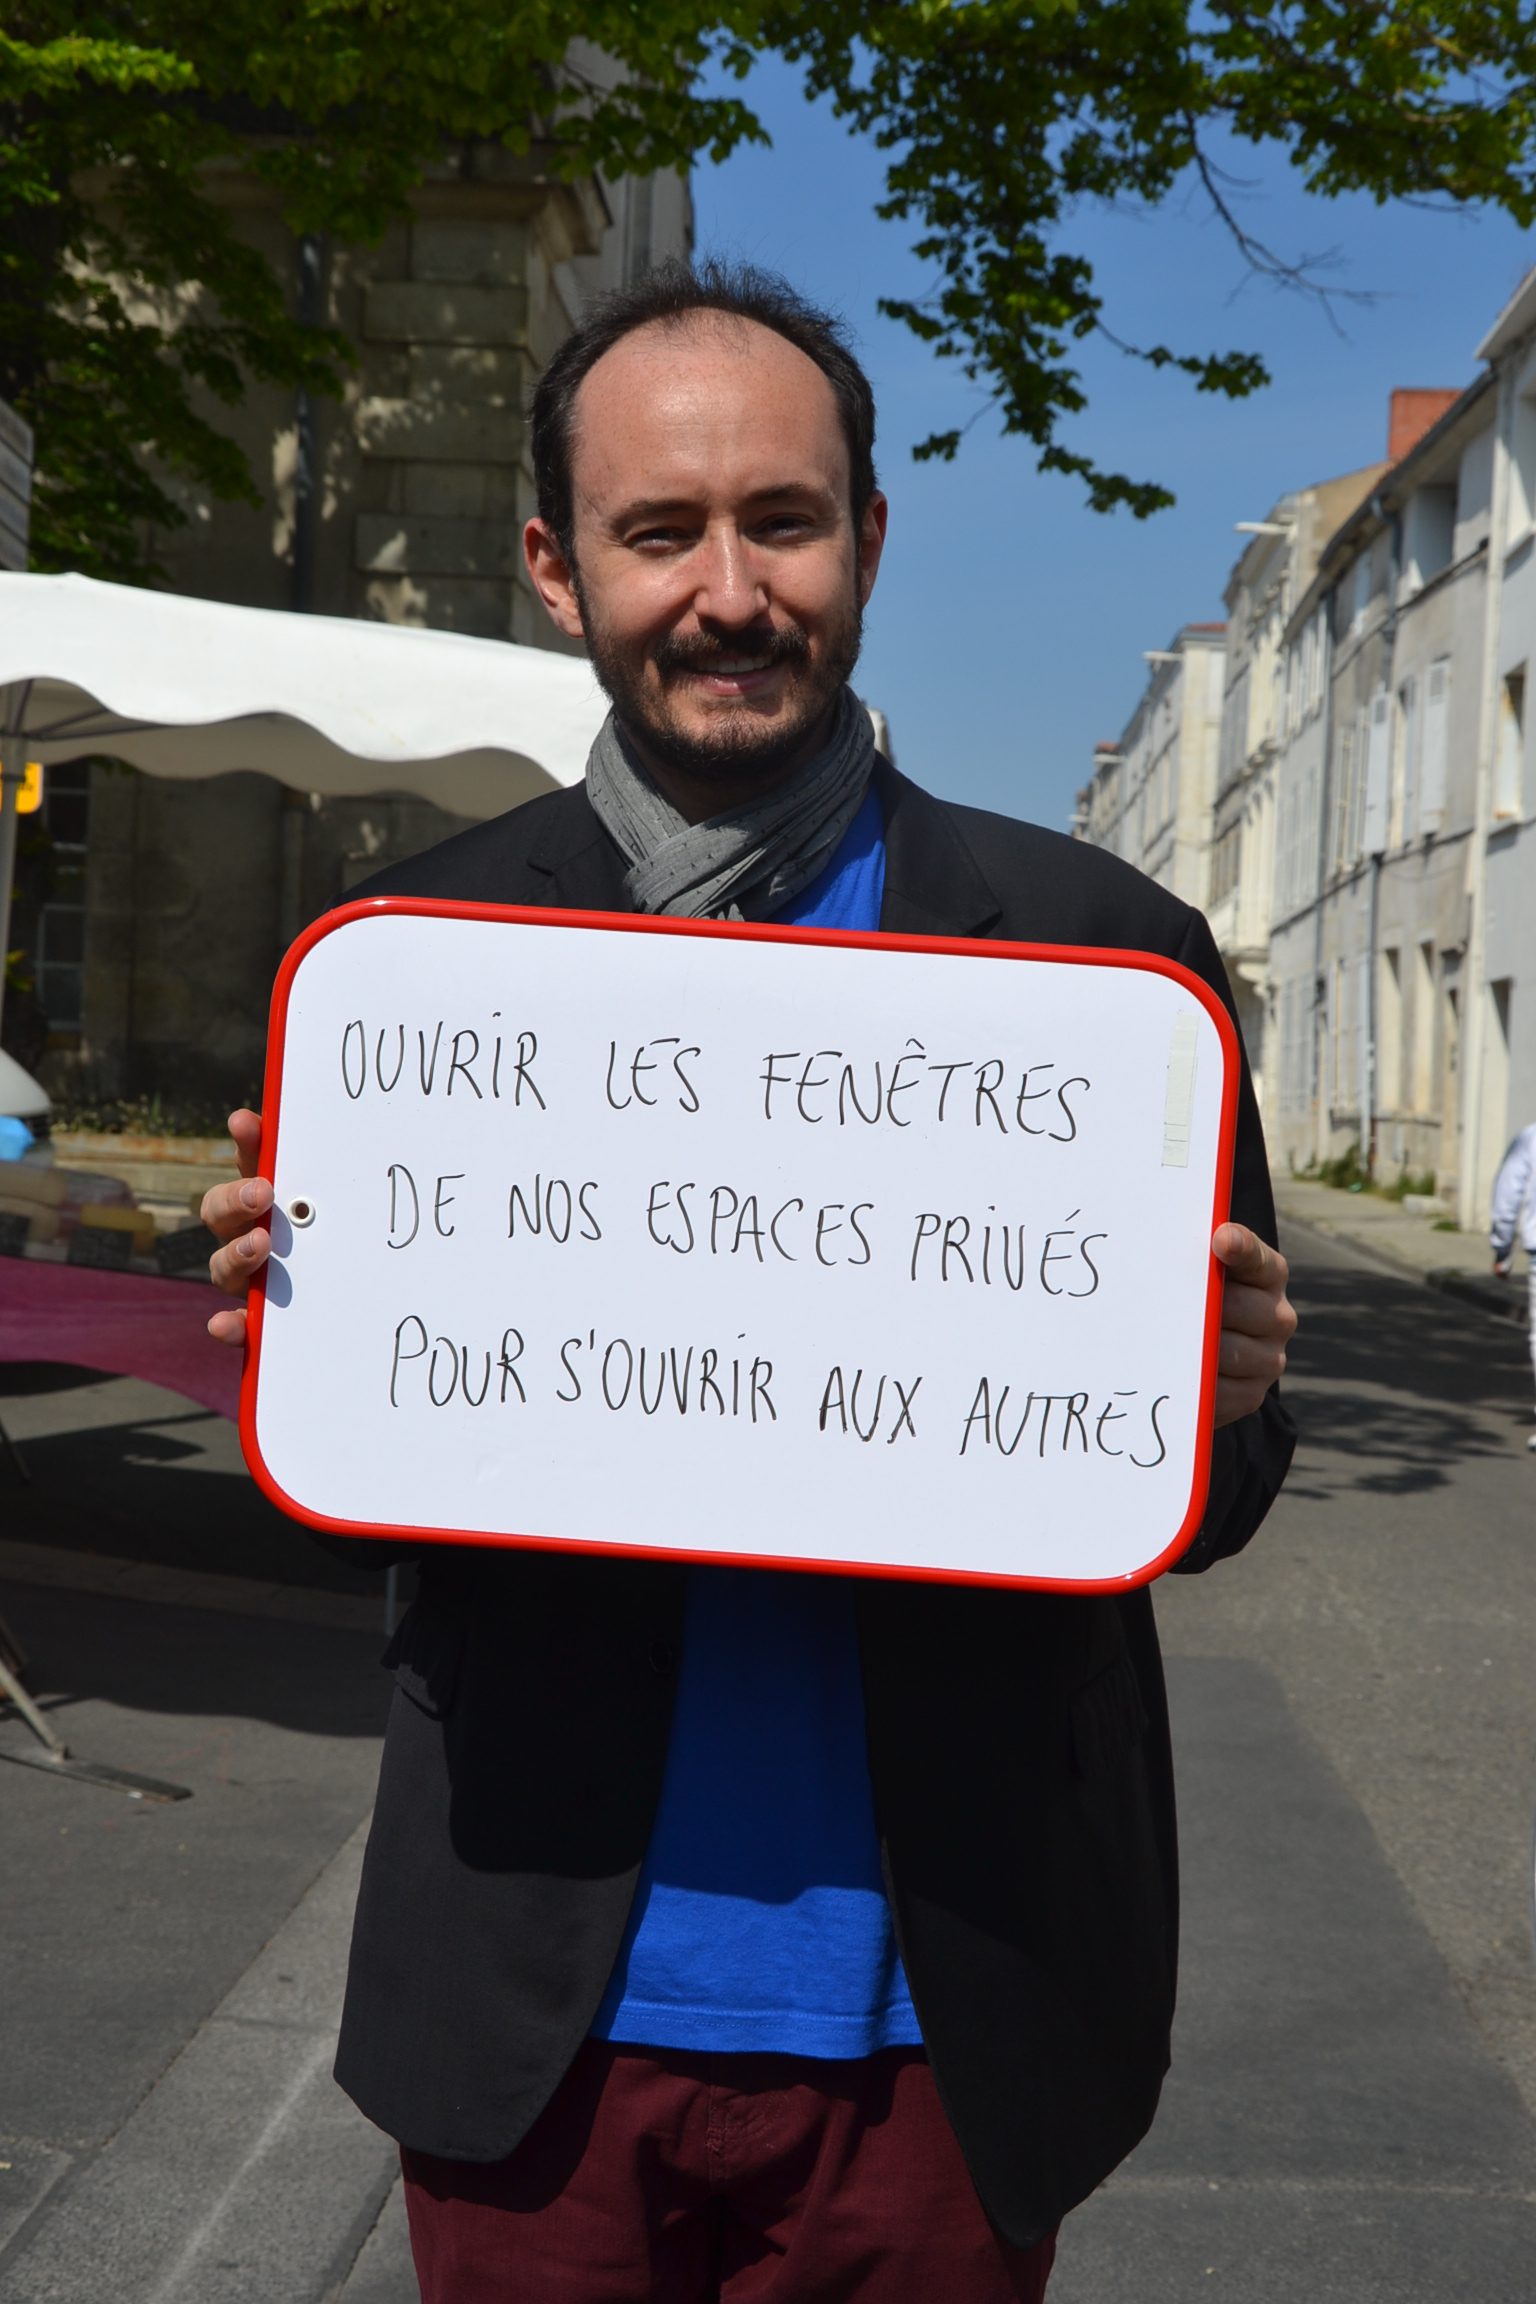 OUVRIR LES FENÊTRES
DE NOS ESPACES PRIVÉS
POUR S'OUVRIR AUX AUTRES